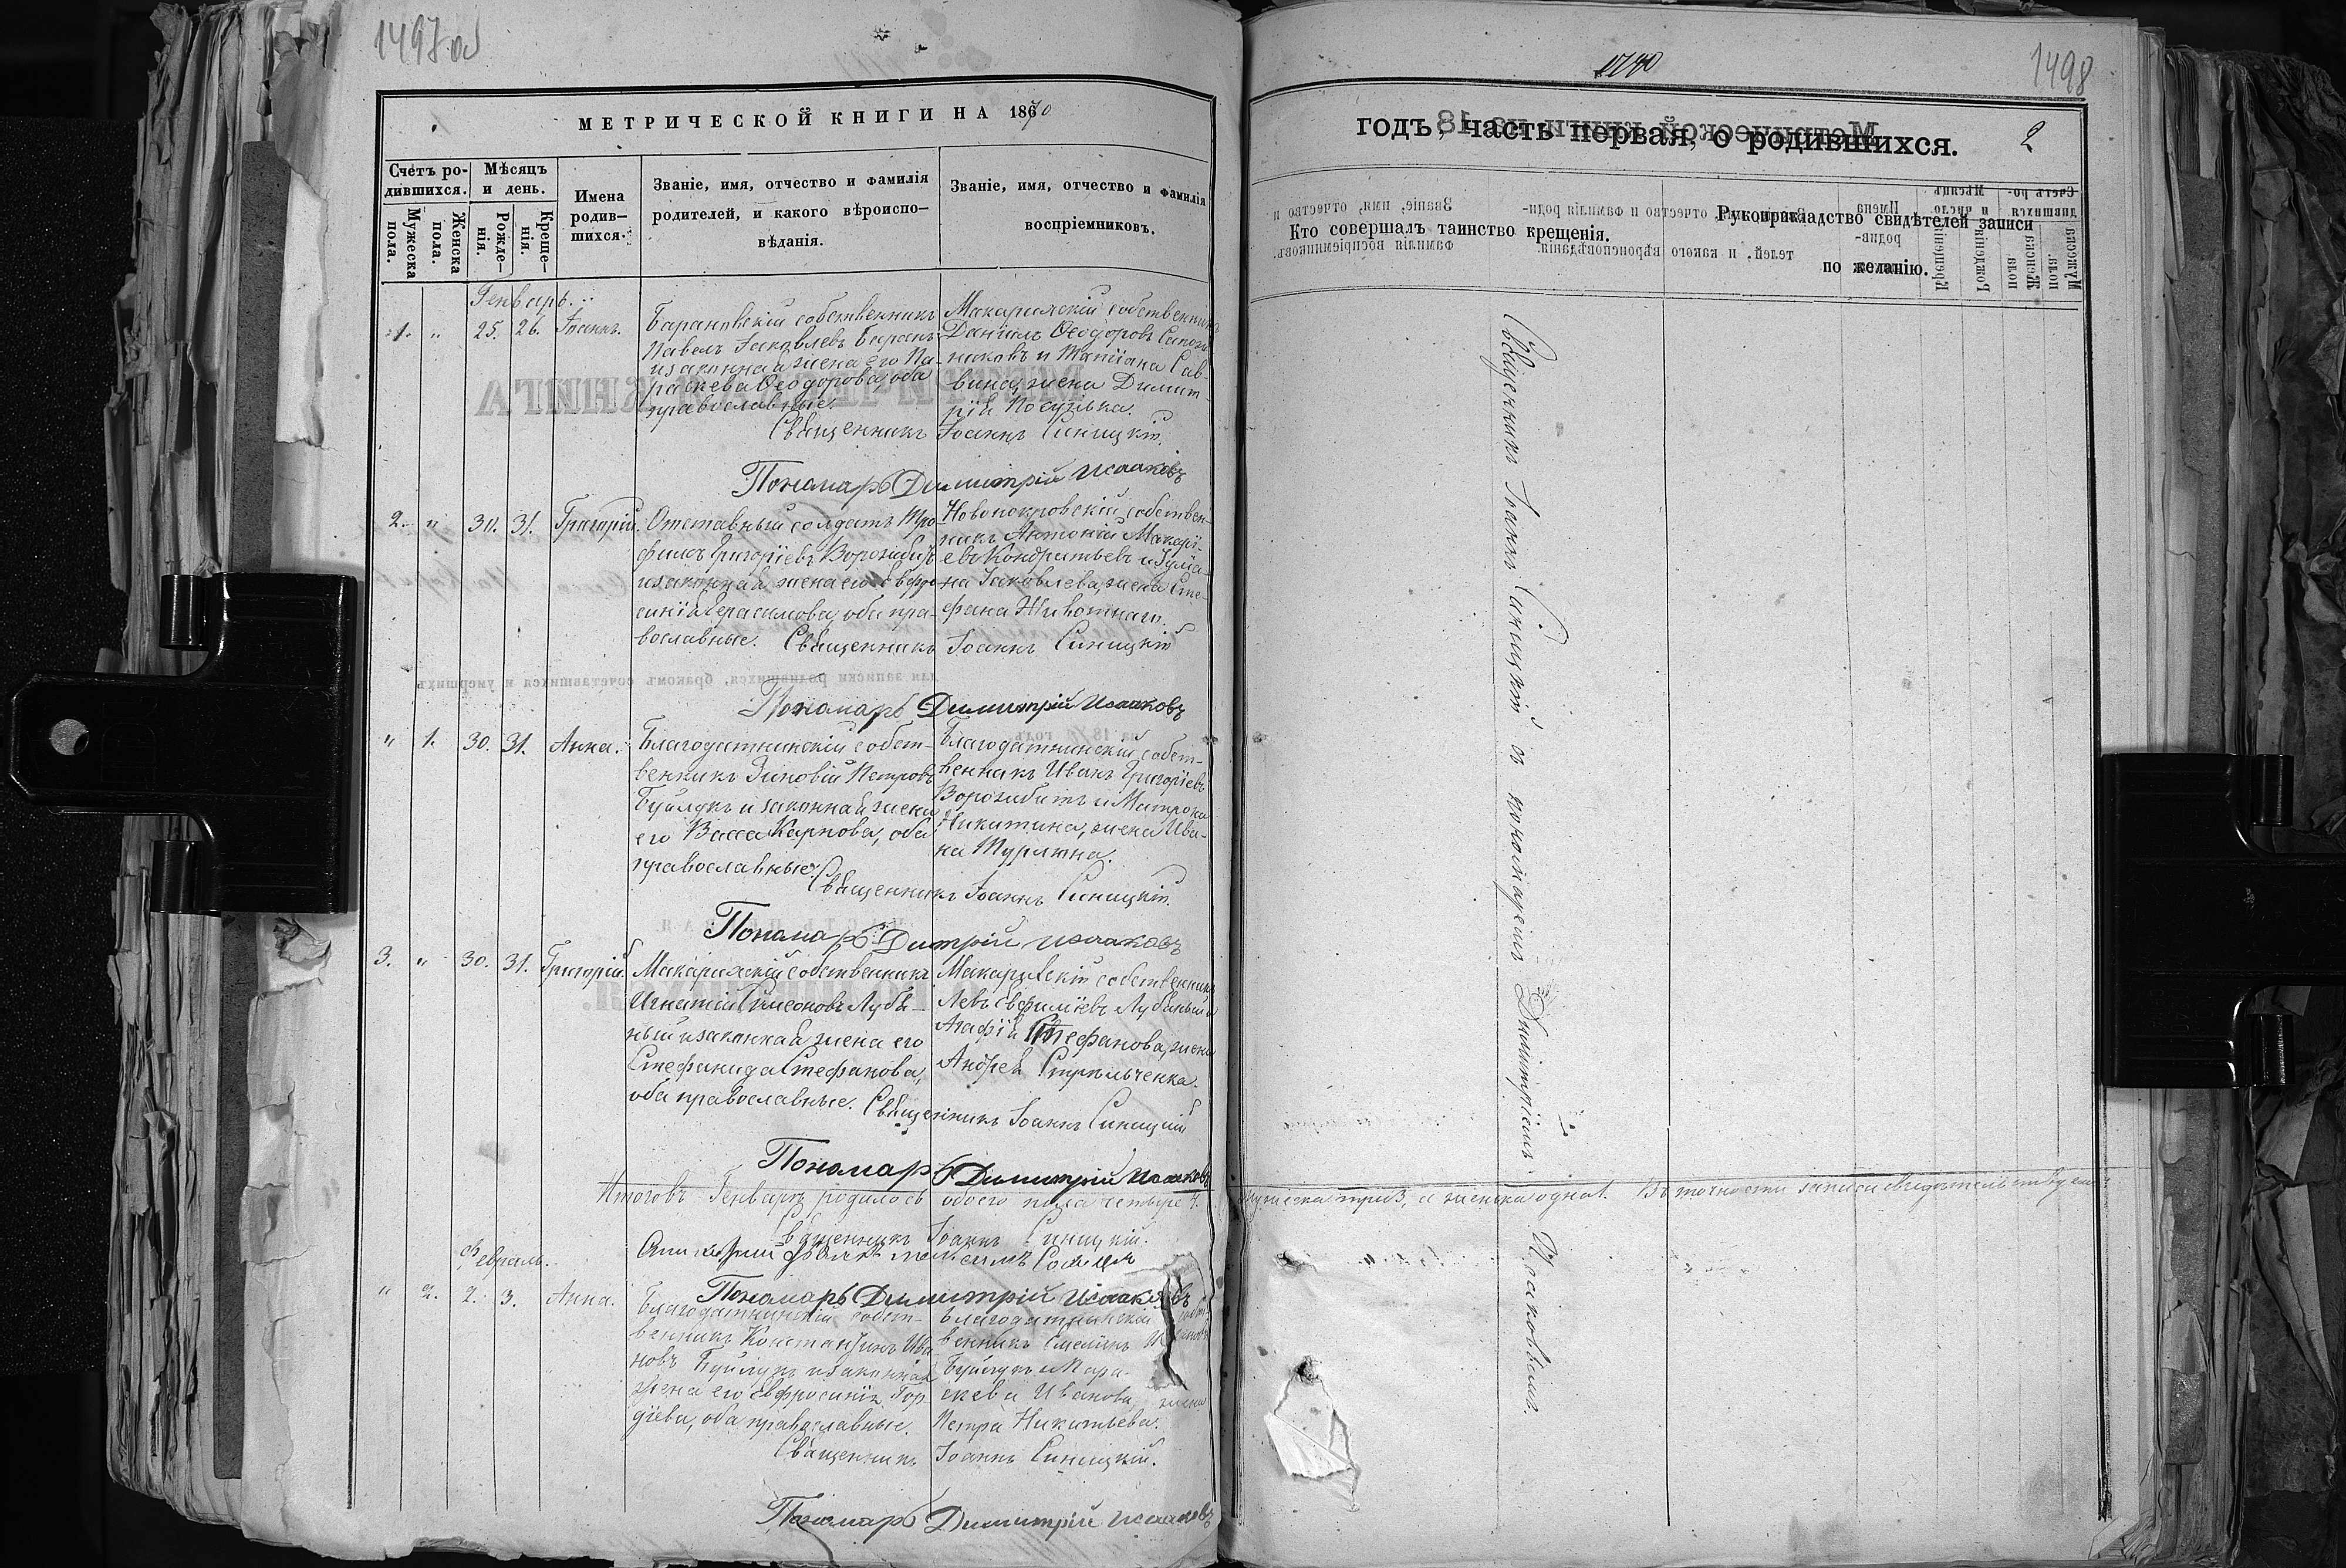 1497 об
МЕТРИЧЕСКОЙ КНИГИ НА 1870
Счетъ ро-
дившихся.
Мужеска
пола.
Женска
пола.
Мѣсяцъ
и день.
Рожде-
нія.
Креще-
нія.
Имена
родив-
шихся.
Званіе, имя, отчество и фамилія
родителей, и какого вѣроиспо-
вѣданія.
Званіе, имя, отчество и фамилія
воспріемниковъ.
Генварь.
1. " 25. 26. Іоаннъ.
Барановскій собственникъ
Павелъ Іаковлевъ Баранъ
и законная жена его Па-
раскева Ѳеодорова, оба
православные.
Макарижскій собственникъ
Даніилъ Ѳеодоровъ Сапож-
никовъ и Татіана Сав-
вина, жена Димит-
рія Посунька.
Священникъ Іоаннъ Синицкій.
Пономарь Димитрій Исааковъ
2. " 30. 31. Григорій.
Отставный солдатъ Тро-
фимъ Григоріевъ Ворожбитъ
и законная жена его Евфро-
синія Герасимова, оба пра-
вославные.
Новопокровскій собствен-
никъ Антоній Макарі-
евъ Кондратьевъ и Іулiа-
на Іаковлева, жена Сте-
фана Животнаго.
Священникъ Іоаннъ Синицкій
Пономарь Димитрій Исааковъ
" 1. 30. 31. Анна.
Благодатнинскій собст-
венникъ Зиновій Петровъ
Буйлукъ и законная жена
его Васса Карпова, оба
православные.
Благодатнинскій собст-
венникъ Иванъ Григоріевъ
Ворожбитъ и Матрона
Никитина, жена Ива-
на
Священникъ Іоаннъ Синицкій.
Пономарь Димтрій Исааковъ
3. " 30. 31. Григорій.
Макарижскій собственникъ
Игнатій Симеоновъ Лубя-
ный и законная жена его
Стефанида Стефанова,
оба православные.
Макарижскій собственникъ
Левъ Евфиміевъ Лубяный и
Агафія Стефанова, жена
Андрея Стрѣльченка.
Священникъ Іоаннъ Синицкій
Пономарь Димитрій Исааковъ
Итого въ Генварѣ родилось обоего пола четыре 4.
Священникъ Іоаннъ Синицкій.
Пономарь Димитрій Исааковъ
Февраль.
" 2. 2. 3. Анна.
Благодатнинскій собст-
венникъ Константинъ Ива-
новъ Буйлукъ и законная
жена его Евфросинія Гор-
діева, оба православные.
Благодатнинскій собст-
венникъ
Буйлукъ и Пара-
скева Иванова, жена
Петра Никитьева.
Священникъ Іоаннъ Синицкій.
Пономарь Димитрій Исааковъ
1498
годъ, часть первая, о родившихся.
2
Кто совершалъ таинство крещенія.
Рукоприкладство свидѣтелей записи
по желанію.
Священникъ Іоаннъ Синицкій съ пономаремъ Димитріемъ Исааковымъ.
мужеска три 3, а женска одна 1. Въ точности записи свидѣтельствуемъ: